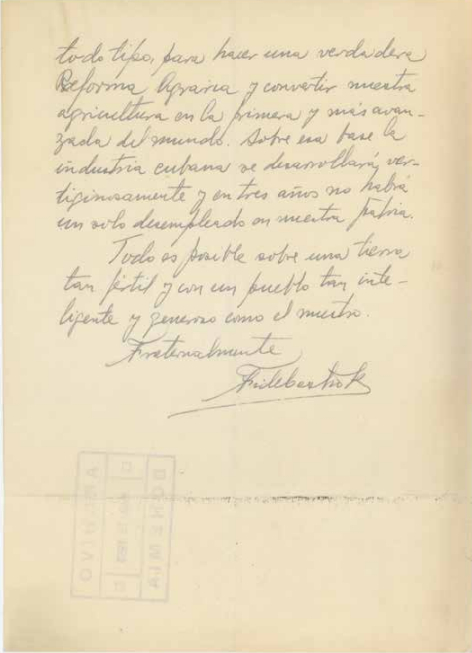 todo tipo, para hacer una verdadera
Reforma Agraria y convertir nuestra
agricultura en la primera y más avan-
zada del mundo. Sobre esa base la
industria cubana se desarrollará ver-
tiginosamente y en tres años no habrá
un solo desempleado en nuestra Patria.
Todo es posible sobre una tierra
tan fértil y con un pueblo tan inte-
ligente y generoso como el nuestro.
Fraternalmente
Fidel Castro R
ARCHIVO
BOHEMIA